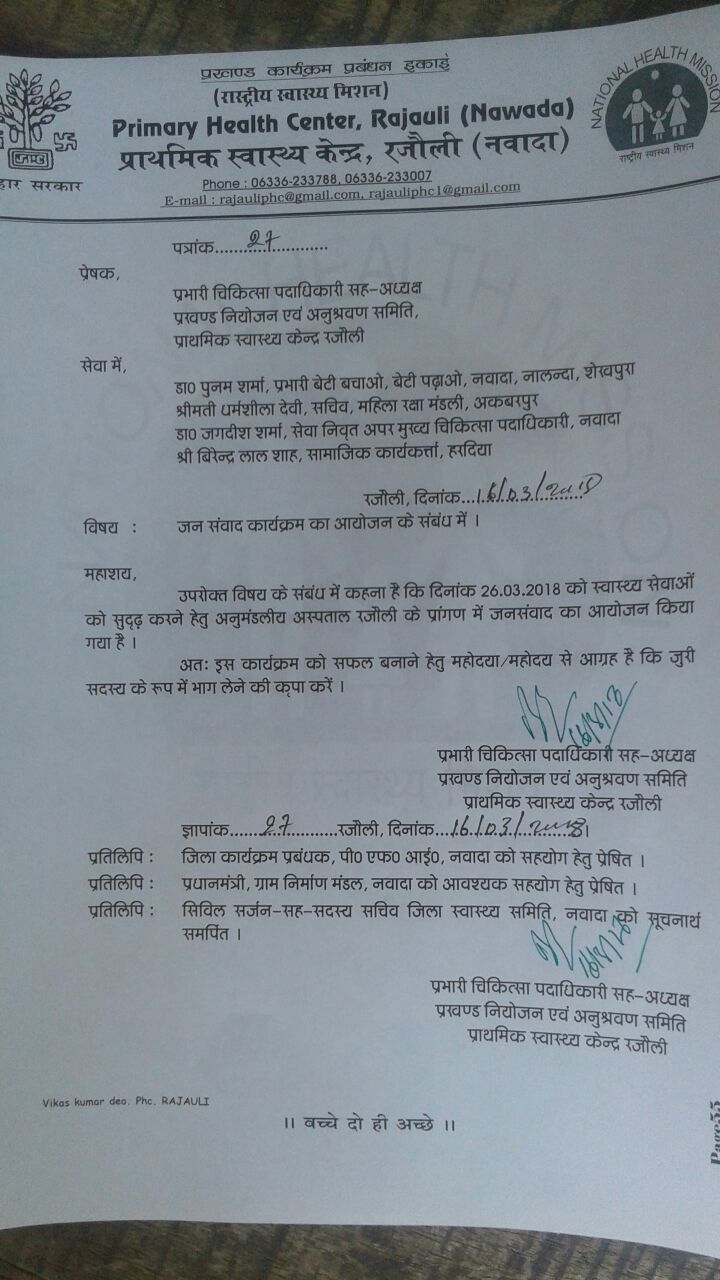 प्रखण्ड कार्यक्रम प्रबंधन इकाई
(रास्ट्रीय स्वास्थ्य मिशन)
Primary Health Center, Rajauli (Nawada)
प्राथमिक स्वास्थ्य केन्द्र, रजौली (नवादा)
Phone : 06336-233788, 06336-233007
E-mail : rajauliphc@gmail.com, rajauliphc1@gmail.com
हार सरकार
NATIONAL HEALTH MISSION
राष्ट्रीय स्वास्थ्य मिशन
पत्रांक......27............
प्रेषक,
प्रभारी चिकित्सा पदाधिकारी सह-अध्यक्ष
प्रखण्ड नियोजन एवं अनुश्रवण समिति,
प्राथमिक स्वास्थ्य केन्द्र रजौली
सेवा में,
डा0 पुनम शर्मा, प्रभारी बेटी बचाओ, बेटी पढ़ाओ, नवादा, नालन्दा, शेखपुरा
श्रीमती धर्मशीला देवी, सचिव, महिला रक्षा मंडली, अकबरपुर
डा0 जगदीश शर्मा, सेवा निवृत अपर मुख्य चिकित्सा पदाधिकारी, नवादा
श्री बिरेन्द्र लाल शाह, सामाजिक कार्यकर्त्ता, हरदिया
रजौली, दिनांक...16/03/2018
विषय : जन संवाद कार्यक्रम का आयोजन के संबंध में ।
महाशय,
उपरोक्त विषय के संबंध में कहना है कि दिनांक 26.03.2018 को स्वास्थ्य सेवाओं
को सुदृढ़ करने हेतु अनुमंडलीय अस्पताल रजौली के प्रांगण में जनसंवाद का आयोजन किया
गया है ।
अतः इस कार्यक्रम को सफल बनाने हेतु महोदया/महोदय से आग्रह है कि जुरी
सदस्य के रूप में भाग लेने की कृपा करें ।
प्रभारी चिकित्सा पदाधिकारी सह-अध्यक्ष
प्रखण्ड नियोजन एवं अनुश्रवण समिति
प्राथमिक स्वास्थ्य केन्द्र रजौली
ज्ञापांक......27............रजौली, दिनांक...16/03/2018।
प्रतिलिपि : जिला कार्यक्रम प्रबंधक, पी0 एफ0 आई0, नवादा को सहयोग हेतु प्रेषित ।
प्रतिलिपि : प्रधानमंत्री, ग्राम निर्माण मंडल, नवादा को आवश्यक सहयोग हेतु प्रेषित ।
प्रतिलिपि : सिविल सर्जन-सह-सदस्य सचिव जिला स्वास्थ्य समिति, नवादा को सूचनार्थ
समर्पित ।
प्रभारी चिकित्सा पदाधिकारी सह-अध्यक्ष
प्रखण्ड नियोजन एवं अनुश्रवण समिति
प्राथमिक स्वास्थ्य केन्द्र रजौली
Vikas kumar deo. Phc. RAJAULI
।। बच्चे दो ही अच्छे ।।